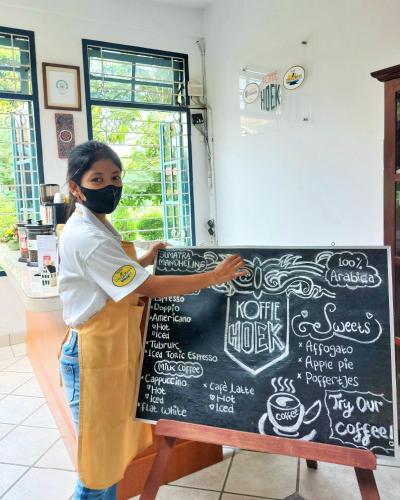 KOFFIE
HOEK
SUMATRA
MANDHELING
100%
Arabica
Espresso
Doppio
Americano
Hot
Iced
Tubruk
Iced Tonic Espresso
Milk Coffee
Cappuccino
Hot
Iced
Flat White
Café Latte
Hot
Iced
KOFFIE
HOEK
Sweets
x Affogato
x Appie pie
x Poffertjes
coffee
Try Our
coffee!